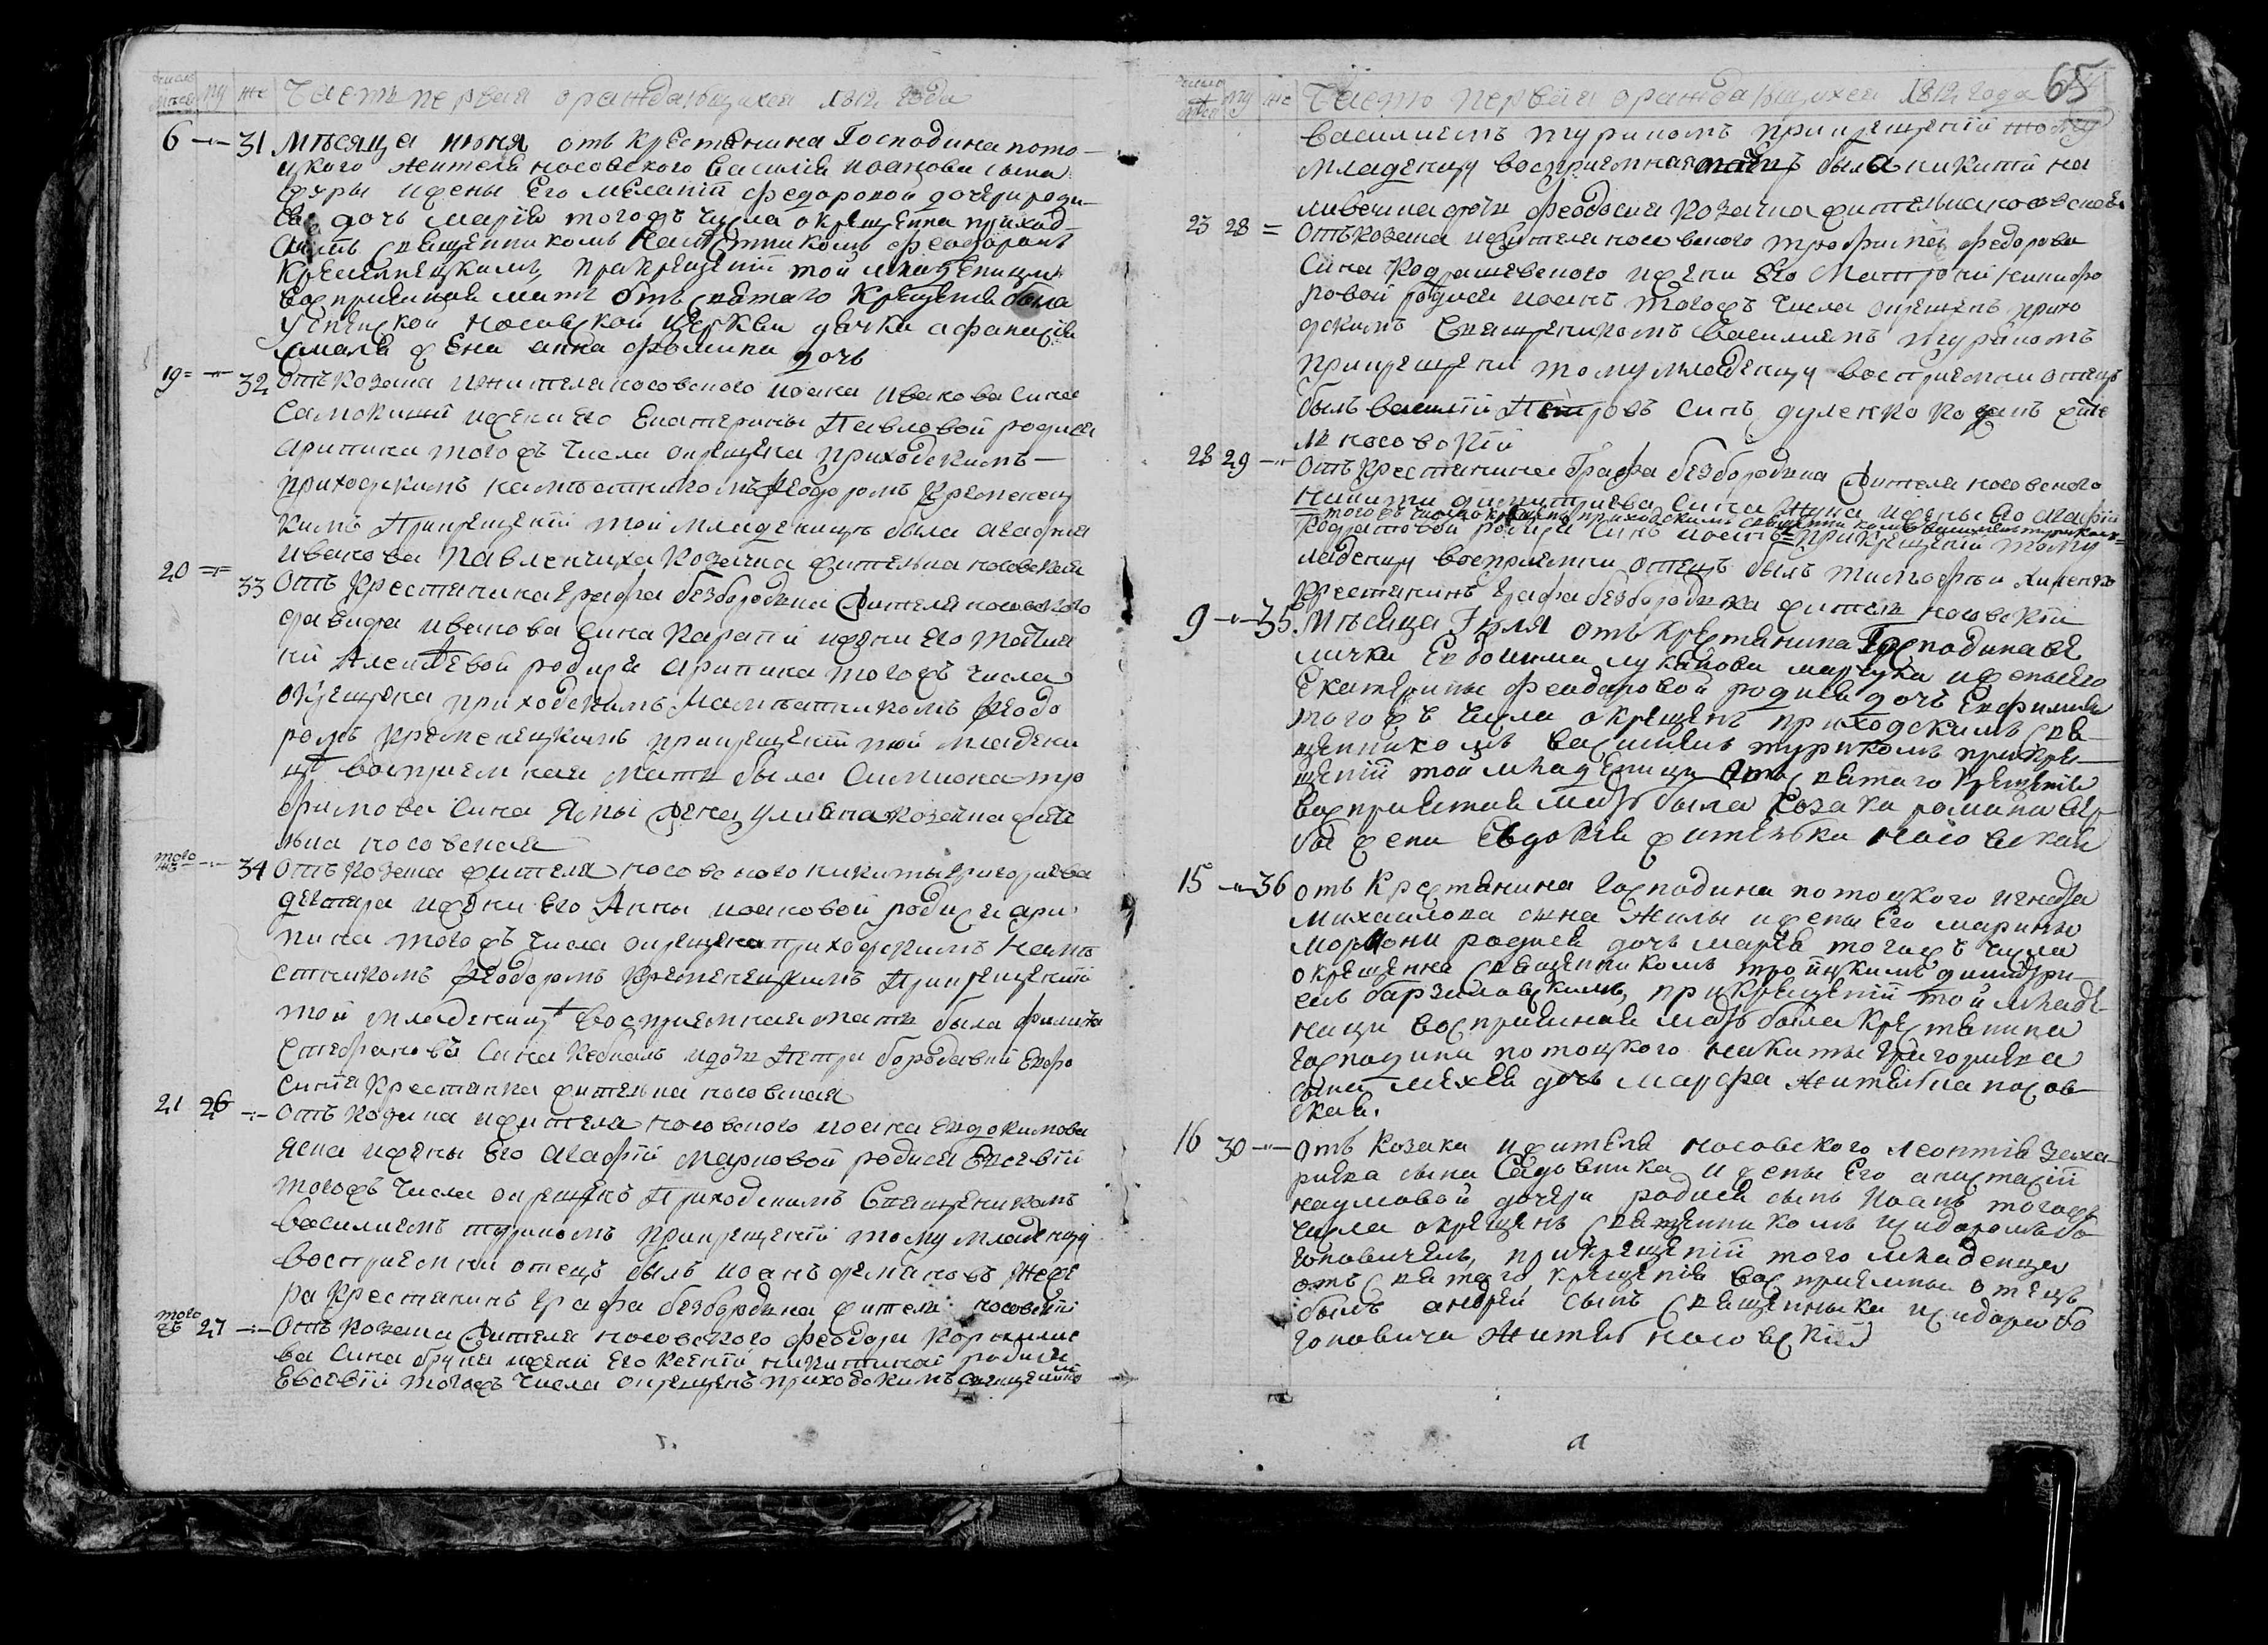 число мѣсец му же Часть первая о раждающихся 1812 Года
6 31 Мѣсяца июня отъ крестянина Господина пото-
цкого жителя носовского Василія Иоанова сына
фуры ижены Его меланіи федоровой дочери роди-
ся дочь марія тогожъ числа окрещенна приход-
скимъ священникомъ намѣстникомъ феодоромъ
Кременецкимъ, прикрещеніи той младеници
воспріемная мать отъ святаго Крещенія была
успенской носовской церкви дячка афанасія
жена анна фомина дочь
19 32 Отъ козака ижителя носовского иоана иванова сина
Самокиши ижени его Екатерины Павловой родися
арипина тогожъ числа окрещена приходскимъ
приходскимъ намѣстникомъ Феодоромъ Кременец
кимъ Прикрещеніи той младеницѣ была агафия
иванова Павленчиха козачка жителка носовская
20 33 Отъ Крестянина графа безбородка жителя носовского
давида иванова сина ижени его татия
ни Алексѣевой родися арипина тогожъ числа
окрещена приходскимъ намѣстникомъ Феодо
ромъ Кременецкимъ прикрещеніи той младени
цѣ воспріемная мати была Симиона тро
фимова сина Ямы жена улияна козачка жите
лка носовская
того жъ 34 Отъ козака жителя носовского никиты григориева
ижени его Анны иоановой родися ари
пина тогожъ числа окрещена приходскимъ намѣ
стникомъ Феодоромъ Кременецкимъ Прикрещеніи
той младеницѣ воспріемная мати была
стефановъ сина идочь Петра бородавки Евфро
синія Крестянка жителка носовская
21 26 Отъ козака ижителя носовского иоана евдокимова
Ясна ижены его агафіи марковой родися Евсевій
тогожъ числа окрещенъ Приходскимъ Священикомъ
василиемъ туриномъ прикрещеніи тому младенцу
воспріемній отецъ былъ иоанъ
ра Крестянинъ графа безбородка жителъ носовскій
того жъ 27 Отъ козака жителя носовского феодора корнилие
ва сина ижени его Ксеніи никитиной родися
Евсевій тогожъ числа окрещенъ приходскимъ священико
число мѣсец му же Часть первая о раждающихся 1812 Года 65
василиемъ туриномъ прикрещеніи тому
младенцу воспріемная была никити на
ливайка дочь Феодосия козачка жителка носовская
23 28 Отъ козака ижителя носовского трофима федорова
сина Кодрашевского ижени его Матрони никифо
ровой родися иоанъ тогожъ числа окрещенъ прихо
дскимъ Священикомъ василиемъ туриномъ
прикрещеніи тому младенцу воспріемній отецъ
былъ василій Петровъ синъ дуленко козакъ жите
лъ носовскій
28 29 Отъ Крестянина Графа безбородка жителя носовского
никити димитриева сина Жука ижены его агафіи
тогожъ числа крещенъ приходскимъ священикомъ василиемъ туриномъ
Кодратовой родися синъ иоанъ прикрещеніи тому
младенцу воспріемній отецъ былъ тимофей
Крестянинъ графа безбородка жителъ носовскій
9 35 Мѣсяца Июля отъ крестянина Господина ве
лички Евдокима лукянова марчука ижены его
Екатерины феодоровой родися дочь Евфимия
тогожъ числа окрещенъ приходскимъ свя-
щенникомъ василиемъ туриномъ прикре-
щеніи той младеници отъ святаго крещенія
воспріемная мать была козака романа
жена Евдокія жителька носовская
15 36 отъ Крестянина Господина потоцкого игната
михаилова сына Жилы ижены его марины
родися дочь марія тогожъ числа
окрещенна священникомъ троицкимъ димитри-
емъ барзиловскимъ, прикрещеніи той младе-
ници воспріемная мать была крестянина
Господина потоцкого никиты Григориева
сына михея дочь марфа жителька носов-
ская.
16 30 отъ козака ижителя носовского леонтія заха-
риева сына Садовника ижены его анастасіи
наумовой дочери родися сынъ иоанъ тогожъ
числа окрещенъ священникомъ исидоромъ бо
гоновичемъ, прикрещеніи того младенца
отъ святаго крещенія воспріемны отецъ
былъ андрей сынъ священника исидора бо
гоновича житель носовскій